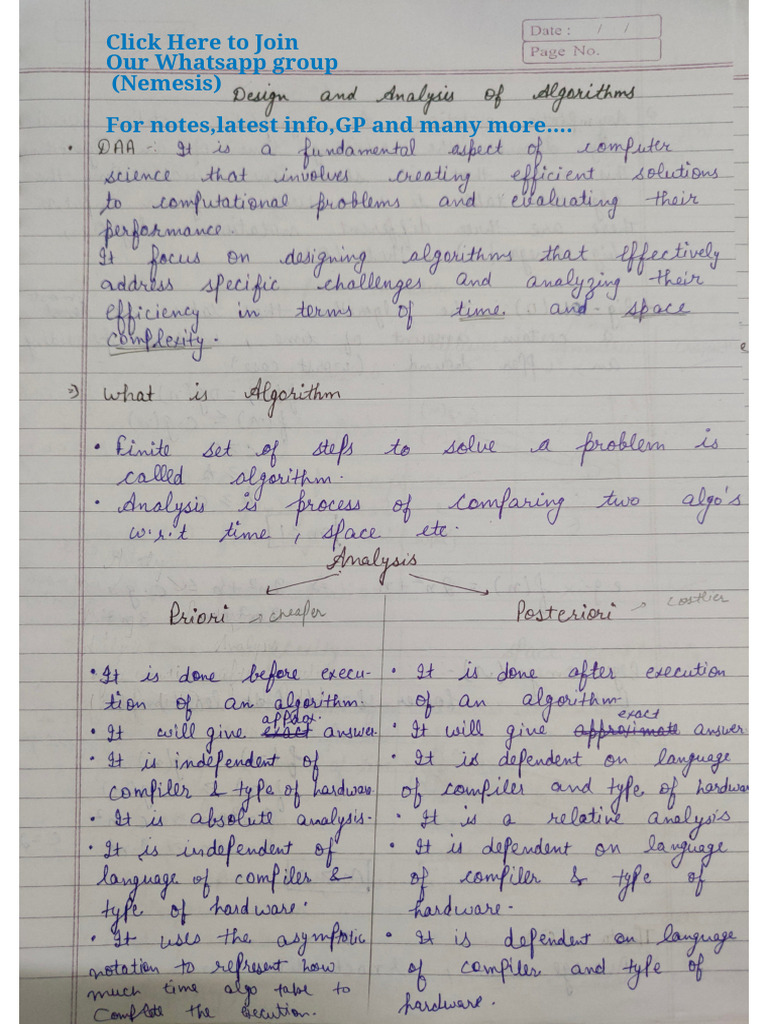 Date : / /
Page No.
Click Here to Join
Our Whatsapp group
(Nemesis)
Design and Analysis of Algorithms
For notes,latest info,GP and many more....
• DAA -: It is a fundamental aspect of computer
science that involves creating efficient solutions
to computational problems and evaluating their
performance.
It focus on designing algorithms that effectively
address specific challenges and analyzing their
efficiency in terms of time and space
complexity.
=> What is Algorithm
• Finite set of steps to solve a problem is
called algorithm.
• Analysis is process of comparing two algo's
w.r.t time, space etc.
Analysis
Priori → cheaper
• It is done before execu-
tion of an algorithm.
approx.
• It will give exact answer.
• It is independent of
compiler & type of hardware.
• It is absolute analysis.
• It is independent of
language of compiler &
type of hardware.
• It uses the asymptotic
notation to represent how
much time algo take to
Complete the execution.
Posteriori → costlier
• It is done after execution
of an algorithm.
exact
• It will give approximate answer
• It is dependent on language
of compiler and type of hardwar
• It is a relative analysis
• It is dependent on language
of compiler & type of
hardware.
• It is dependent on language
of compiler and type of
hardware.